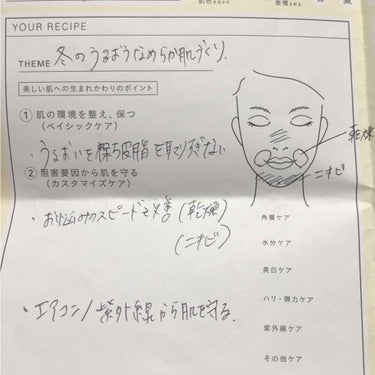 肌色を生かす
表情を彩る
YOUR RECIPE
THEME 冬のうるおうなめらか肌づくり.
美しい肌への生まれかわりのポイント
① 肌の環境を整え、保つ
(ベイシックケア)
・うるおいを保ち皮脂を取りすぎない
② 阻害要因から肌を守る
(カスタマイズケア)
・お悩みのスピード改善(乾燥)
(ニキビ)
・エアコン/紫外線から肌を守る.
乾燥
ニキビ
角層ケア
水分ケア
美白ケア
ハリ・弾力ケア
紫外線ケア
その他ケア